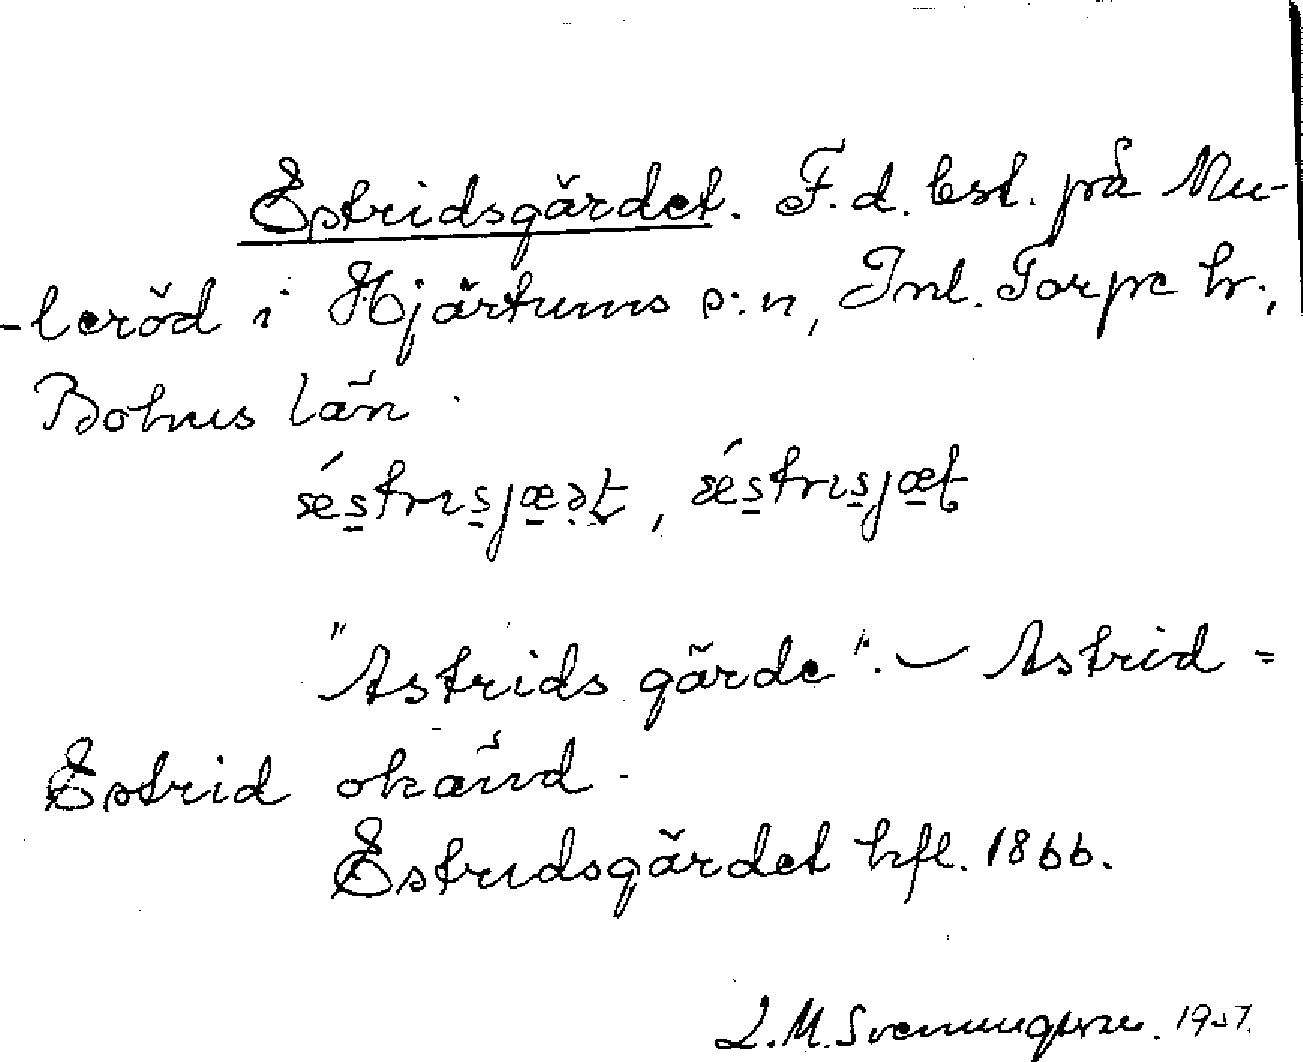 Estridsgärdet. F.d. bst. på Mu-
-leröd i Hjärtums s:n, Inl. Torpe hr.,
Bohus län.
"Astrids gärde". – Astrid =
Estrid okänd.
Estridsgärdet hfl. 1866.
L.M. Svenungsson. 1957.